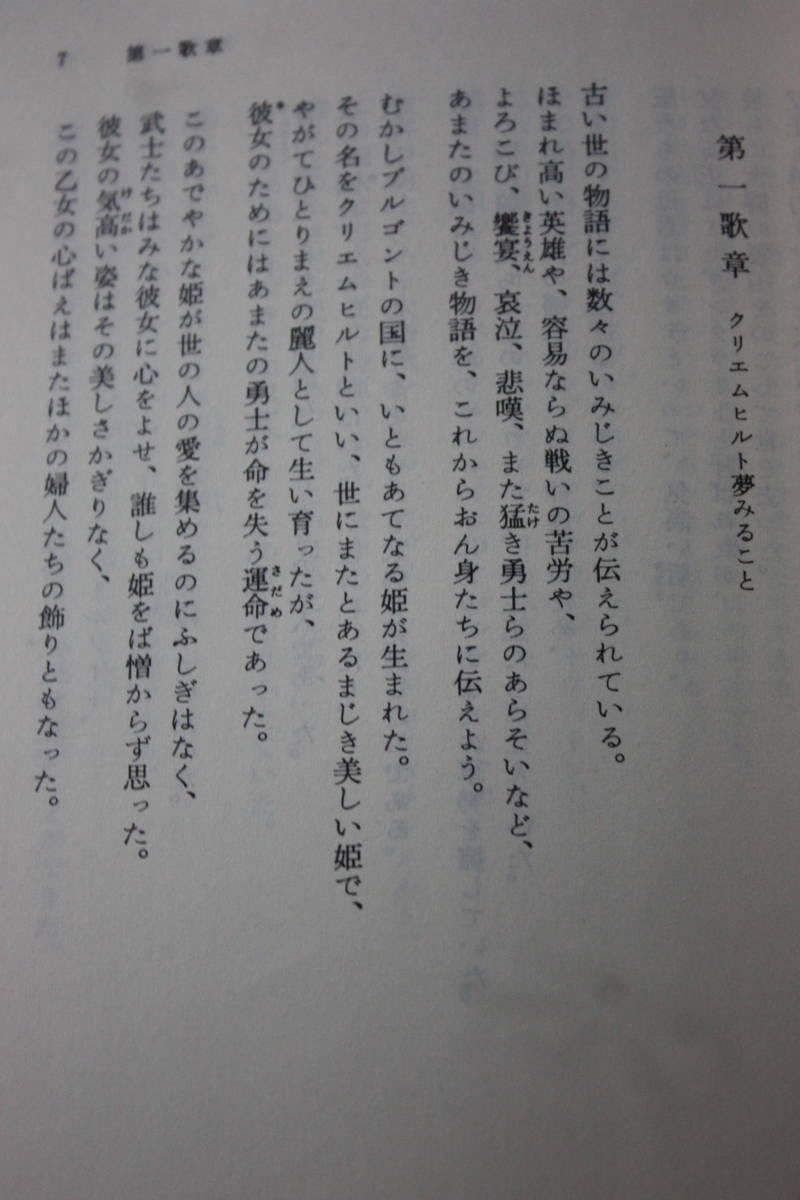 7 第一歌章
第一歌章 クリエムヒルト夢みること
古い世の物語には数々のいみじきことが伝えられている。
ほまれ高い英雄や、容易ならぬ戦いの苦労や、
よろこび、饗宴、哀泣、悲嘆、また猛き勇士らのあらそいなど、
あまたのいみじき物語を、これからおん身たちに伝えよう。
むかしブルゴントの国に、いともあてなる姫が生まれた。
その名をクリエムヒルトといい、世にまたとあるまじき美しい姫で、
やがてひとりまえの麗人として生い育ったが、
彼女のためにはあまたの勇士が命を失う運命であった。
このあでやかな姫が世の人の愛を集めるのにふしぎはなく、
武士たちはみな彼女に心をよせ、誰しも姫をば憎からず思った。
彼女の気高い姿はその美しさかぎりなく、
この乙女の心ばえはまたほかの婦人たちの飾りともなった。